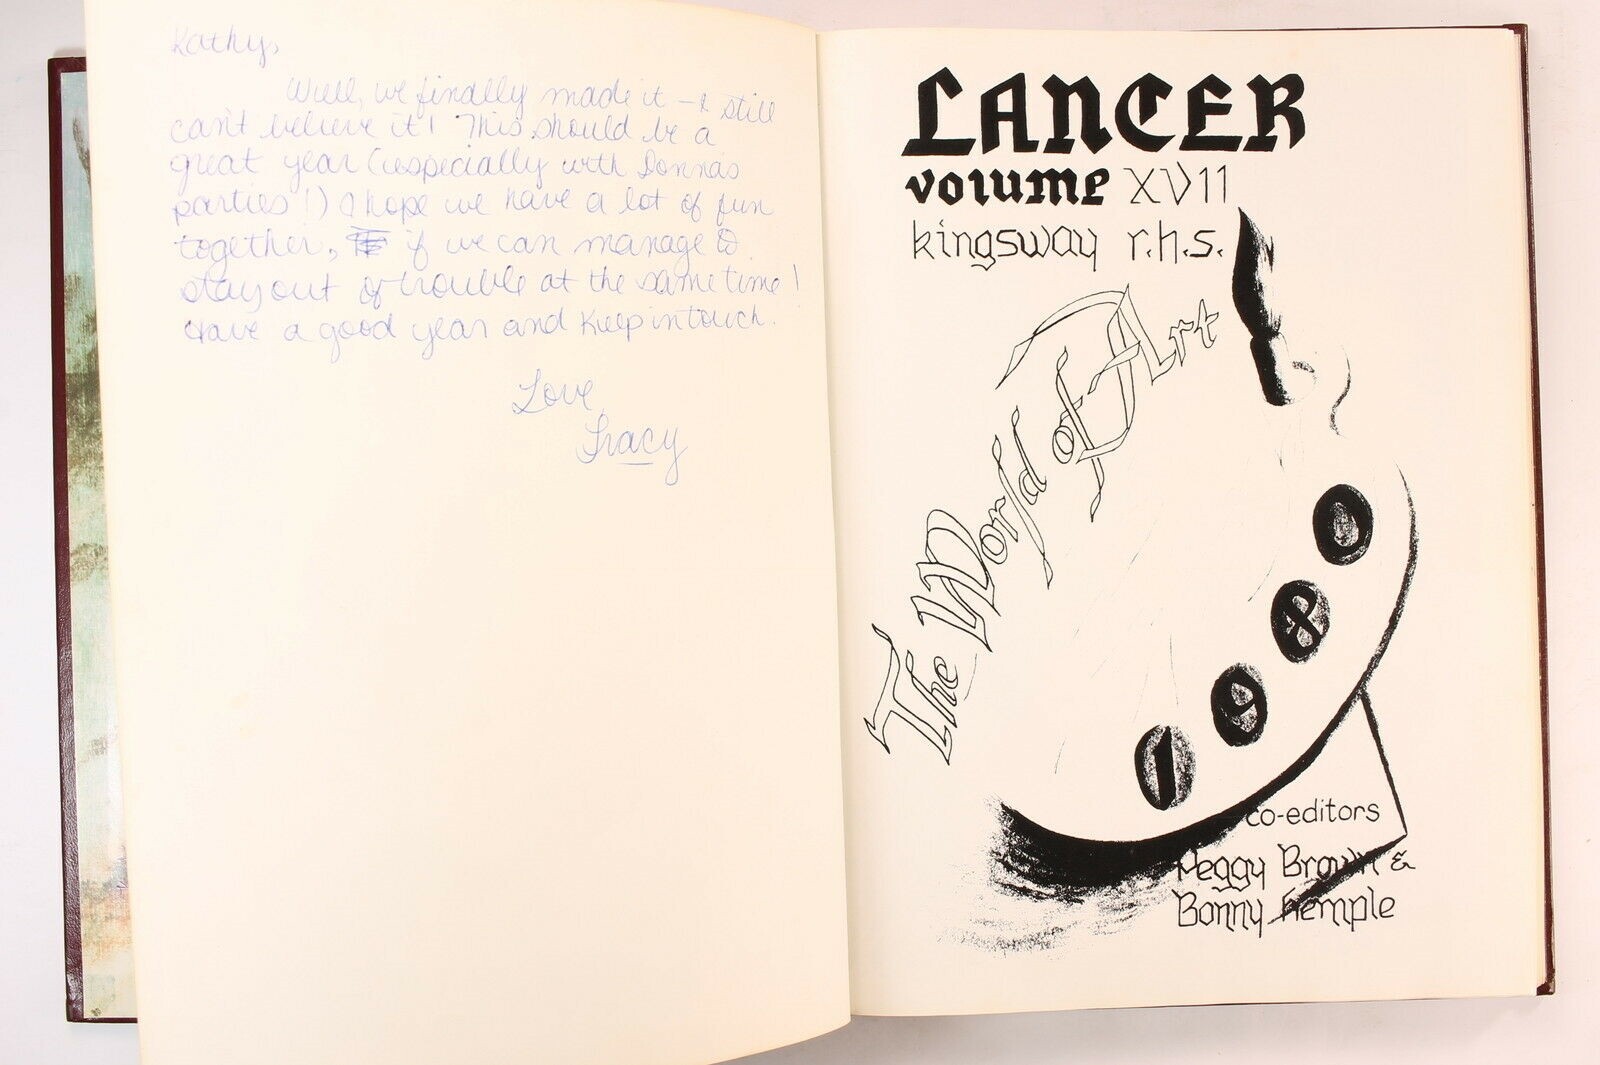 Kathy,
Well, we finally made it - I still
can't believe it! This should be a
great year (especially with Donna's
parties!) I hope we have a lot of fun
together, if we can manage to
stay out of trouble at the same time!
Have a good year and keep in touch.
Love,
Tracy
LANCER
volume XVII
kingsway r.h.s.
The World of Art
1980
co-editors
Peggy Brown &
Bonny Hemple